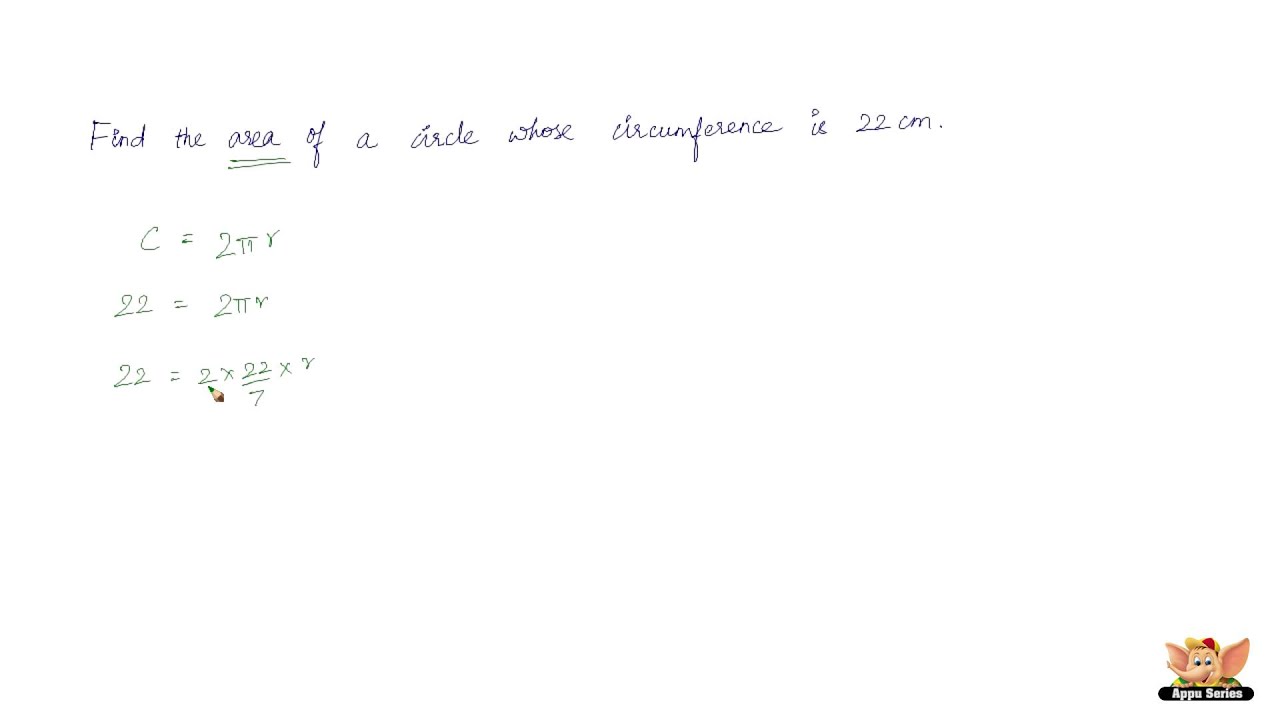 Find the area of a circle whose circumference is 22 cm.
C = 2πr
22 = 2πr
22 = 2 × 22/7 × r
Appu Series